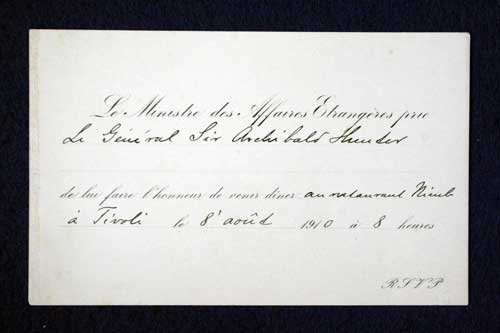 Le Ministre des Affaires Etrangères prie
Le Général Sir Archibald Hunter
de lui faire l'honneur de venir dîner au restaurant Nimb
à Tivoli le 8' août 1910 à 8 heures
R.S.V.P.